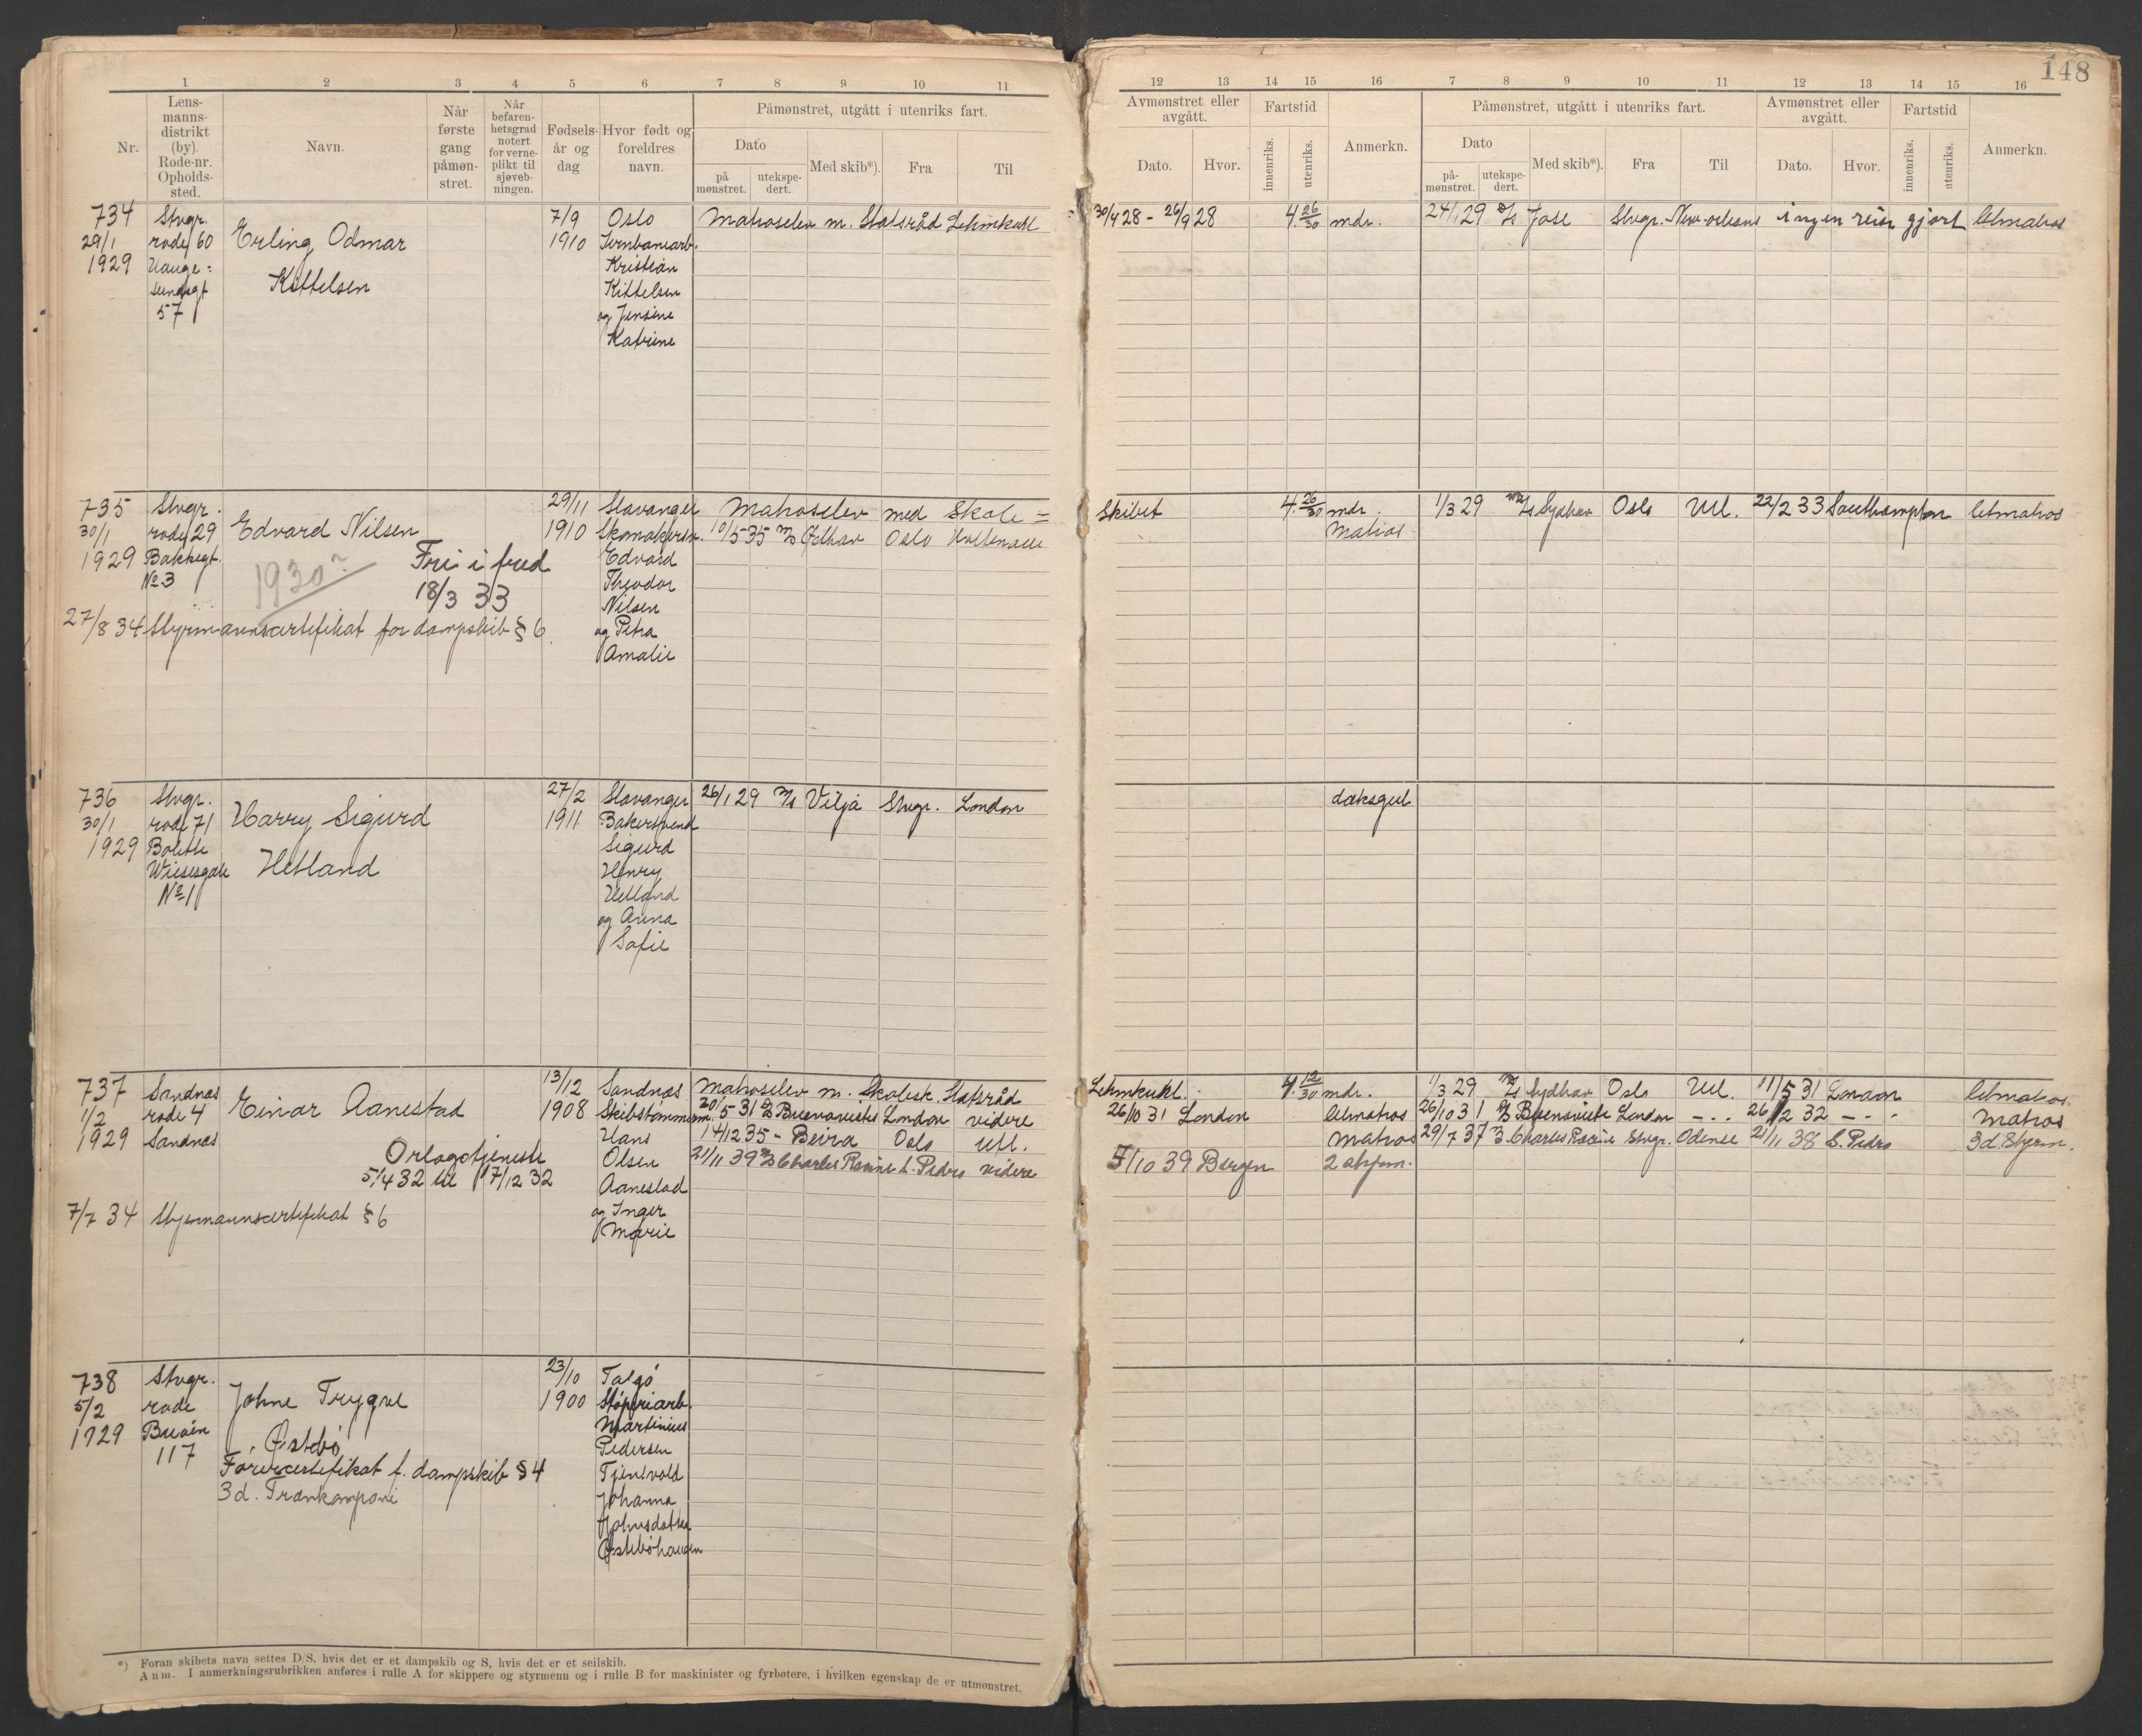 148
1 2 3 4 5 6 7 8 9 10 11
Nr.
Lens-
manns-
distrikt
(by).
Rode-nr.
Opholds-
sted.
Navn.
Når
første
gang
påmøn-
stret.
Når
befaren-
hetsgrad
notert
for verne-
plikt til
sjøveb-
ningen.
Fødsels-
år og
dag
Hvor født og
foreldres
navn.
Påmønstret, utgått i utenriks fart.
Dato
på
mønstret.
utekspe-
dert.
Med skib*).
Fra
Til
12 13 14 15 16 7 8 9 10 11 12 13 14 15 16
Avmønstret eller
avgått.
Dato.
Hvor.
Fartstid
innenriks.
utenriks.
Anmerkn.
Påmønstret, utgått i utenriks fart.
Dato
på-
mønstret.
utekspe-
dert.
Med skib*).
Fra
Til
Avmønstret eller
avgått.
Dato.
Hvor.
Fartstid
innenriks.
utenriks.
Anmerkn.
734
29/1
1929
Stvgr.
rode 60
Hauge=
sundsgt
57
Erling Odmar
Kittelsen
7/9
1910
Oslo
Jernbanearb.
Kristian
Kittelsen
og Jensine
Katrine
Matroselev m. Statsråd Lehmkuhl
30/4 28 - 26/9 28 4 26/30 mdr.
24/1 29 Jose Stvgr. New-orleans ingen reise gjort letmatros
735
30/1
1929
Stvgr.
rode 29
Bakkegt.
No 3
Edvard Nilsen
1930
Fri i fred
18/3 33
27/8 34 Styrmannscertifikat for dampskib § 6.
29/11
1910
Stavanger
Skomakersv.
Edvard
Theodor
Nilsen
og Petra
Amalie
Matroselev med Skole=
10/5 35 Oslo
Skibet 4 26/30 mdr.
Matros
1/3 29 M/S Sydhav Oslo Utl. 22/2 33 Southampton letmatros
736
30/1
1929
Stvgr.
rode 71
Bolette
Wiesesgate
No 1
Harry Sigurd
Hetland
27/2
1911
Stavanger
Bakersvend
Sigurd
Henry
Hetland
og Anna
Sofie
26/1 29 M/S Vilja Stvgr. London
daksgut
737
1/2
1929
Sandnes
rode 4
Sandnes
Einar Aanestad
Orlogstjeneste
5/4 32 til 17/12 32
7/7 34 Styrmannscertifikat § 6
13/12
1908
Sandnes
Skibstømmerm.
Hans
Olsen
Aanestad
og Inger
Marie
Matroselev m. Skolesk. Statsråd
30/5 31 Buenavista London videre
14/12 35 - Beira Oslo Utl.
21/11 39 M/S Charles Racine S. Pedro videre
Lehmkuhl. 4 12/30 mdr.
26/10 31 London letmatros
Matros
5/10 39 Bergen 2 styrm.
1/3 29 M/S Sydhav Oslo Utl. 11/5 31 London letmatros.
26/10 31 Buenavista London - . . 26/2 32 - . . Matros
29/7 37 Charles Racine Stvgr. Odense 21/11 38 S. Pedro 3d. Styrm.
738
5/2
1929
Stvgr.
rode
Buøen
117
Johne Trygve
Østebø
Førercertifikat f. dampskib § 4
3d. Trænkompani
23/10
1900
Talgø
Støperiarb.
Martinius
Pedersen
Tjentvold
Johanna
Johnsdatter
Østebøhaugen
*) Foran skibets navn settes D/S, hvis det er et dampskib og S, hvis det er et seilskib.
Anm. I anmerkningsrubrikken anføres i rulle A for skippere og styrmenn og i rulle B for maskinister og fyrbøtere, i hvilken egenskap de er utmønstret.